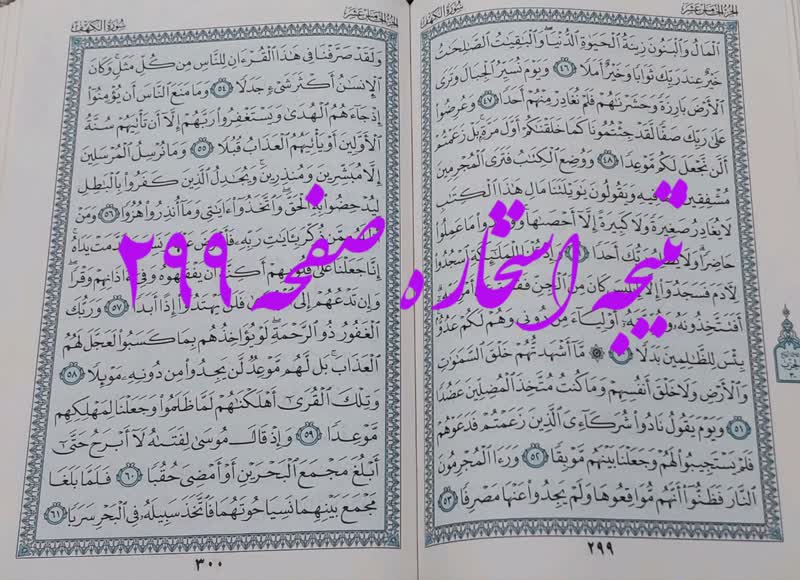 الجزء الخامس عشر
سورة الكهف
ٱلْمَالُ وَٱلْبَنُونَ زِينَةُ ٱلْحَيَوٰةِ ٱلدُّنْيَا وَٱلْبَٰقِيَٰتُ ٱلصَّٰلِحَٰتُ
خَيْرٌ عِندَ رَبِّكَ ثَوَابًا وَخَيْرٌ أَمَلًا ٤٦ وَيَوْمَ نُسَيِّرُ ٱلْجِبَالَ وَتَرَى
ٱلْأَرْضَ بَارِزَةً وَحَشَرْنَٰهُمْ فَلَمْ نُغَادِرْ مِنْهُمْ أَحَدًا ٤٧ وَعُرِضُوا۟
عَلَىٰ رَبِّكَ صَفًّا لَّقَدْ جِئْتُمُونَا كَمَا خَلَقْنَٰكُمْ أَوَّلَ مَرَّةٍۭ بَلْ زَعَمْتُمْ
أَلَّن نَّجْعَلَ لَكُم مَّوْعِدًا ٤٨ وَوُضِعَ ٱلْكِتَٰبُ فَتَرَى ٱلْمُجْرِمِينَ
مُشْفِقِينَ مِمَّا فِيهِ وَيَقُولُونَ يَٰوَيْلَتَنَا مَالِ هَٰذَا ٱلْكِتَٰبِ
لَا يُغَادِرُ صَغِيرَةً وَلَا كَبِيرَةً إِلَّآ أَحْصَىٰهَا وَوَجَدُوا۟ مَا عَمِلُوا۟
حَاضِرًا وَلَا يَظْلِمُ رَبُّكَ أَحَدًا وَإِذْ قُلْنَا لِلْمَلَٰٓئِكَةِ ٱسْجُدُوا۟
لِءَادَمَ فَسَجَدُوٓا۟ إِلَّآ إِبْلِيسَ كَانَ مِنَ ٱلْجِنِّ فَفَسَقَ عَنْ أَمْرِ رَبِّهِۦٓ
أَفَتَتَّخِذُونَهُۥ وَذُرِّيَّتَهُۥٓ أَوْلِيَآءَ مِن دُونِى وَهُمْ لَكُمْ عَدُوٌّۢ
بِئْسَ لِلظَّٰلِمِينَ بَدَلًا ۞ مَّآ أَشْهَدتُّهُمْ خَلْقَ ٱلسَّمَٰوَٰتِ
وَٱلْأَرْضِ وَلَا خَلْقَ أَنفُسِهِمْ وَمَا كُنتُ مُتَّخِذَ ٱلْمُضِلِّينَ عَضُدًا
٥١ وَيَوْمَ يَقُولُ نَادُوا۟ شُرَكَآءِىَ ٱلَّذِينَ زَعَمْتُمْ فَدَعَوْهُمْ
فَلَمْ يَسْتَجِيبُوا۟ لَهُمْ وَجَعَلْنَا بَيْنَهُم مَّوْبِقًا ٥٢ وَرَءَا ٱلْمُجْرِمُونَ
ٱلنَّارَ فَظَنُّوٓا۟ أَنَّهُم مُّوَاقِعُوهَا وَلَمْ يَجِدُوا۟ عَنْهَا مَصْرِفًا ٥٣
٢٩٩
الجزء الخامس عشر
سورة الكهف
وَلَقَدْ صَرَّفْنَا فِى هَٰذَا ٱلْقُرْءَانِ لِلنَّاسِ مِن كُلِّ مَثَلٍ وَكَانَ
ٱلْإِنسَٰنُ أَكْثَرَ شَىْءٍ جَدَلًا ٥٤ وَمَا مَنَعَ ٱلنَّاسَ أَن يُؤْمِنُوٓا۟
إِذْ جَآءَهُمُ ٱلْهُدَىٰ وَيَسْتَغْفِرُوا۟ رَبَّهُمْ إِلَّآ أَن تَأْتِيَهُمْ سُنَّةُ
ٱلْأَوَّلِينَ أَوْ يَأْتِيَهُمُ ٱلْعَذَابُ قُبُلًا ٥٥ وَمَا نُرْسِلُ ٱلْمُرْسَلِينَ
إِلَّا مُبَشِّرِينَ وَمُنذِرِينَ وَيُجَٰدِلُ ٱلَّذِينَ كَفَرُوا۟ بِٱلْبَٰطِلِ
لِيُدْحِضُوا۟ بِهِ ٱلْحَقَّ وَٱتَّخَذُوٓا۟ ءَايَٰتِى وَمَآ أُنذِرُوا۟ هُزُوًا ٥٦ وَمَنْ
أَظْلَمُ مِمَّن ذُكِّرَ بِـَٔايَٰتِ رَبِّهِۦ فَأَعْرَضَ عَنْهَا وَنَسِىَ مَا قَدَّمَتْ يَدَاهُ
إِنَّا جَعَلْنَا عَلَىٰ قُلُوبِهِمْ أَكِنَّةً أَن يَفْقَهُوهُ وَفِىٓ ءَاذَانِهِمْ وَقْرًا
وَإِن تَدْعُهُمْ إِلَى ٱلْهُدَىٰ فَلَن يَهْتَدُوٓا۟ إِذًا أَبَدًا ٥٧ وَرَبُّكَ
ٱلْغَفُورُ ذُو ٱلرَّحْمَةِ لَوْ يُؤَاخِذُهُم بِمَا كَسَبُوا۟ لَعَجَّلَ لَهُمُ
ٱلْعَذَابَ بَل لَّهُم مَّوْعِدٌ لَّن يَجِدُوا۟ مِن دُونِهِۦ مَوْئِلًا ٥٨
وَتِلْكَ ٱلْقُرَىٰٓ أَهْلَكْنَٰهُمْ لَمَّا ظَلَمُوا۟ وَجَعَلْنَا لِمَهْلِكِهِم
مَّوْعِدًا ٥٩ وَإِذْ قَالَ مُوسَىٰ لِفَتَىٰهُ لَآ أَبْرَحُ حَتَّىٰٓ
أَبْلُغَ مَجْمَعَ ٱلْبَحْرَيْنِ أَوْ أَمْضِىَ حُقُبًا ٦٠ فَلَمَّا بَلَغَا
مَجْمَعَ بَيْنِهِمَا نَسِيَا حُوتَهُمَا فَٱتَّخَذَ سَبِيلَهُۥ فِى ٱلْبَحْرِ سَرَبًا ٦١
٣٠٠
نتیجه استخاره صفحه ۲۹۹